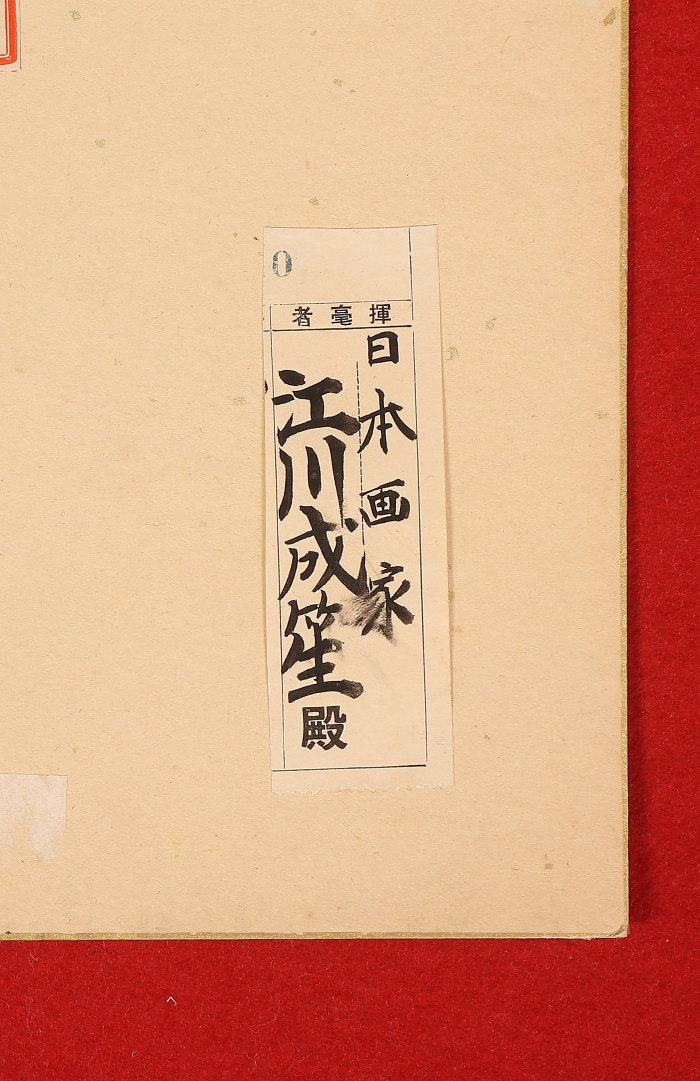 0
揮毫者
日本画家
江川成笙殿